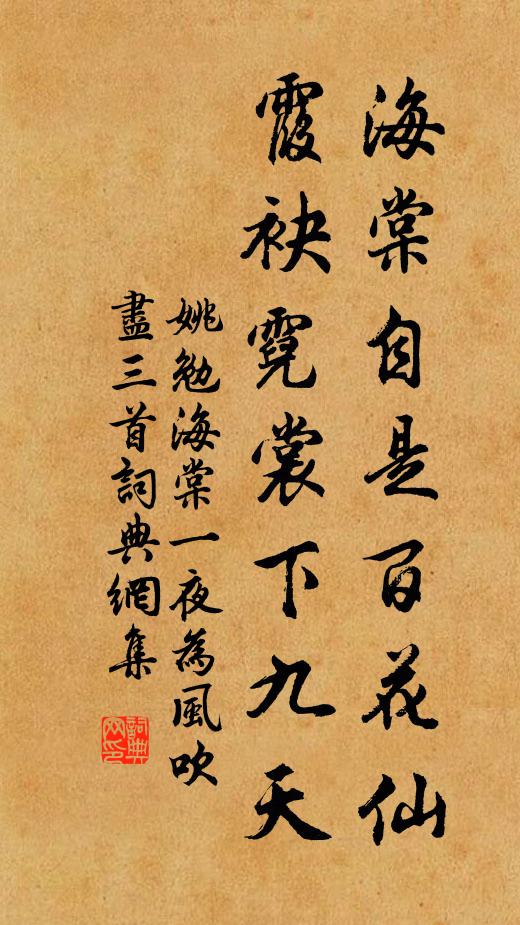 海棠自是百花仙
霞袂霓裳下九天
姚勉海棠一夜為風吹
盡三首詞典網集
詞典
网印